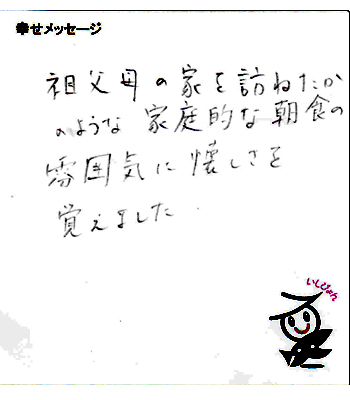 幸せメッセージ
祖父母の家を訪ねたか
のような 家庭的な朝食の
雰囲気に懐しさを
覚えました
いしぴょん